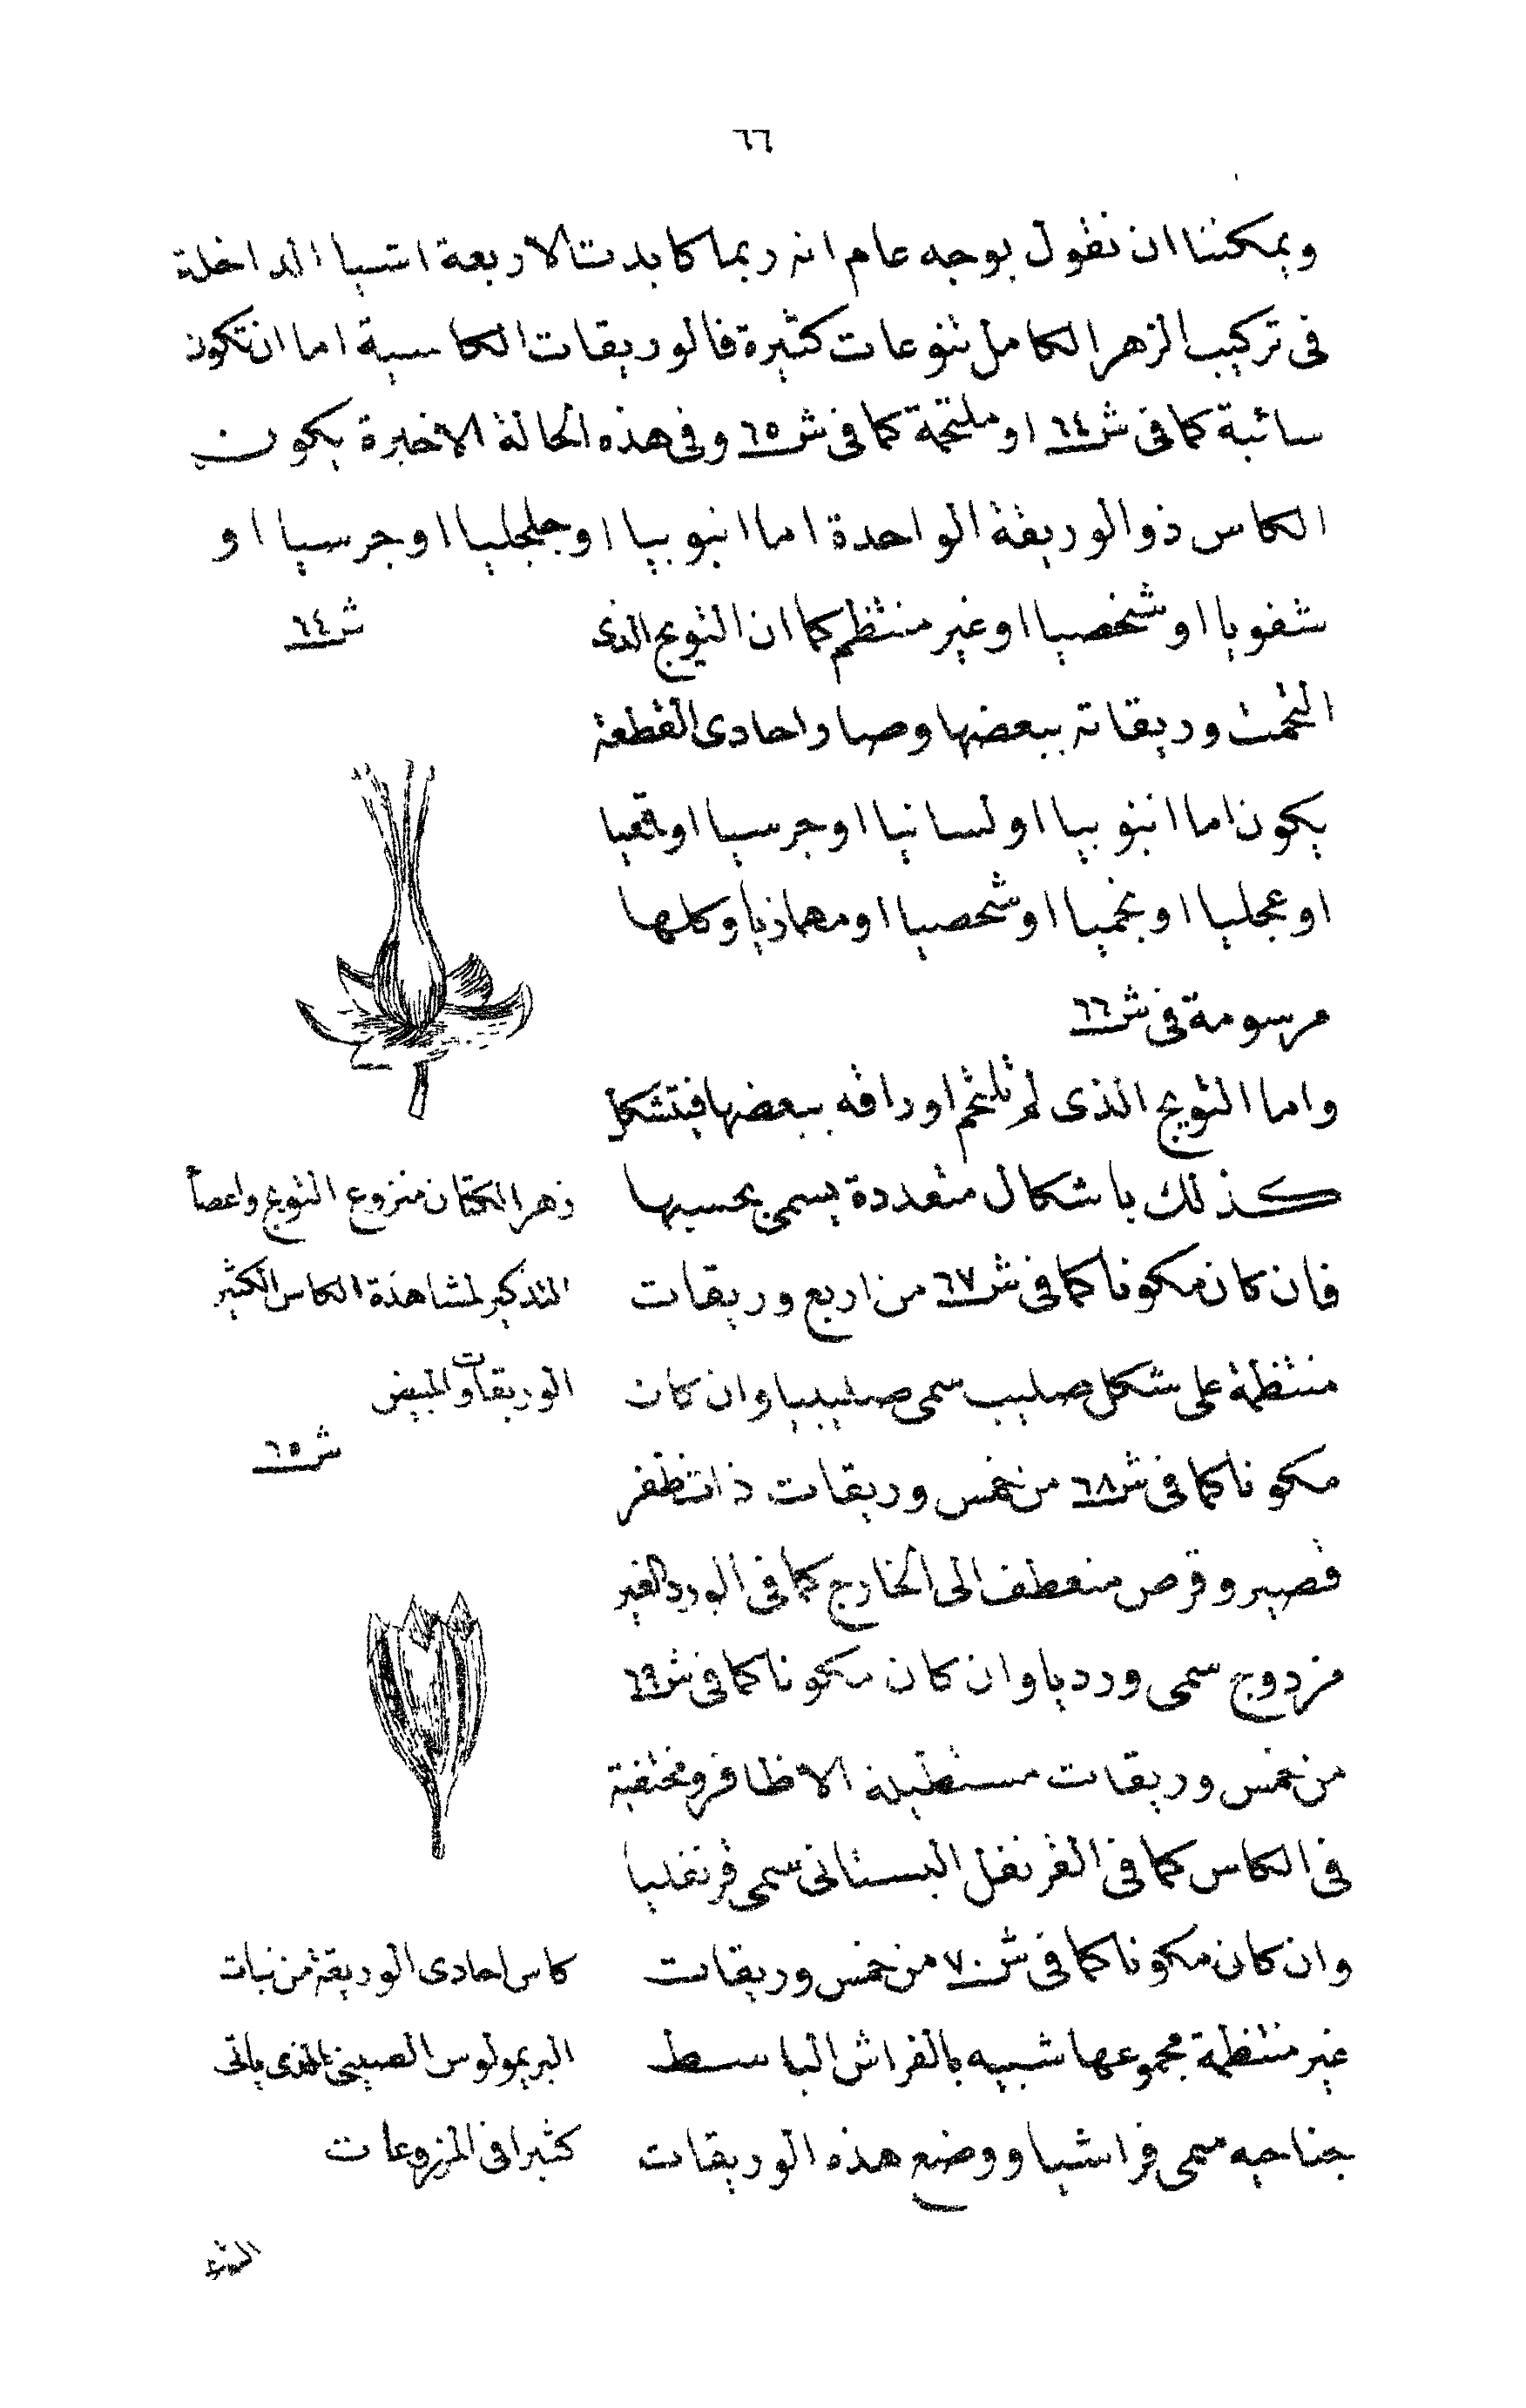 ٦٦
ويمكننا ان نقول بوجه عام انه ربما كابدت الاربعة اشيا الداخلة
فى تركيب الزهر الكامل تنوعات كثيرة فالوريقات الكاسية اما ان تكون
سائبة كما فى ش٦٤ او ملتحمة كما فى ش٦٥ وفى هذه الحالة الاخيرة يكون
الكاس ذو الوريقة الواحدة اما انبوبيا او جلجليا او جرسيا او
شفويا او شخصيا او غير منتظم كما ان التويج الذى
التحمت وريقاته ببعضها وصار احادى القطعة
يكون اما انبوبيا او لسانيا او جرسيا او قمعيا
او عجليا او نجميا او شخصيا او مهمازيا وكلها
مرسومة فى ش٦٦
واما التويج الذى لم تلتحم اوراقه ببعضها فيتشكل
كذلك باشكال متعددة يسمى بحسبها
فان كان مكونا كما فى ش٦٧ من اربع وريقات
منتظمة على شكل صليب سمى صليبيا وان كان
مكونا كما فى ش٦٨ من خمس وريقات ذات ظفر
قصير وقرص منعطف الى الخارج كما فى الورد الغير
مزدوج سمى ورديا وان كان مكونا كما فى ش٦٩
من خمس وريقات مستطيلة الاظافر ومختفية
فى الكاس كما فى القرنفل البستانى سمى قرنفليا
وان كان مكونا كما فى ش٧٠ من خمس وريقات
غير منتظمة مجموعها شبيه بالفراش الباسط
جناحيه سمى فراشيا ووضع هذه الوريقات
ش٦٤
زهر الكتان منزوع التويج واعضا
التذكير لمشاهدة الكاس الكثير
الوريقات والمبيض
ش٦٥
كاس احادى الوريقة من نبات
البريمولوس الصينى الذى ياتى
كثيرا فى المزروعات